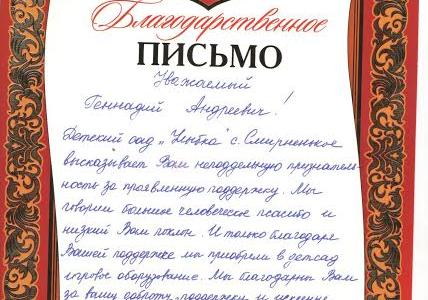 Благодарственное
ПИСЬМО
Уважаемый
Геннадий Андреевич!
Детский сад „Улыбка" с. Смирненькое
высказывает Вам неподдельную признатель-
ность за проявленную поддержку. Мы
говорим большое человеческое спасибо и
низкий Вам поклон. И только благодаря
Вашей поддержке мы приобрели в детсад
игровое оборудование. Мы благодарны Вам
за вашу доброту, поддержку и